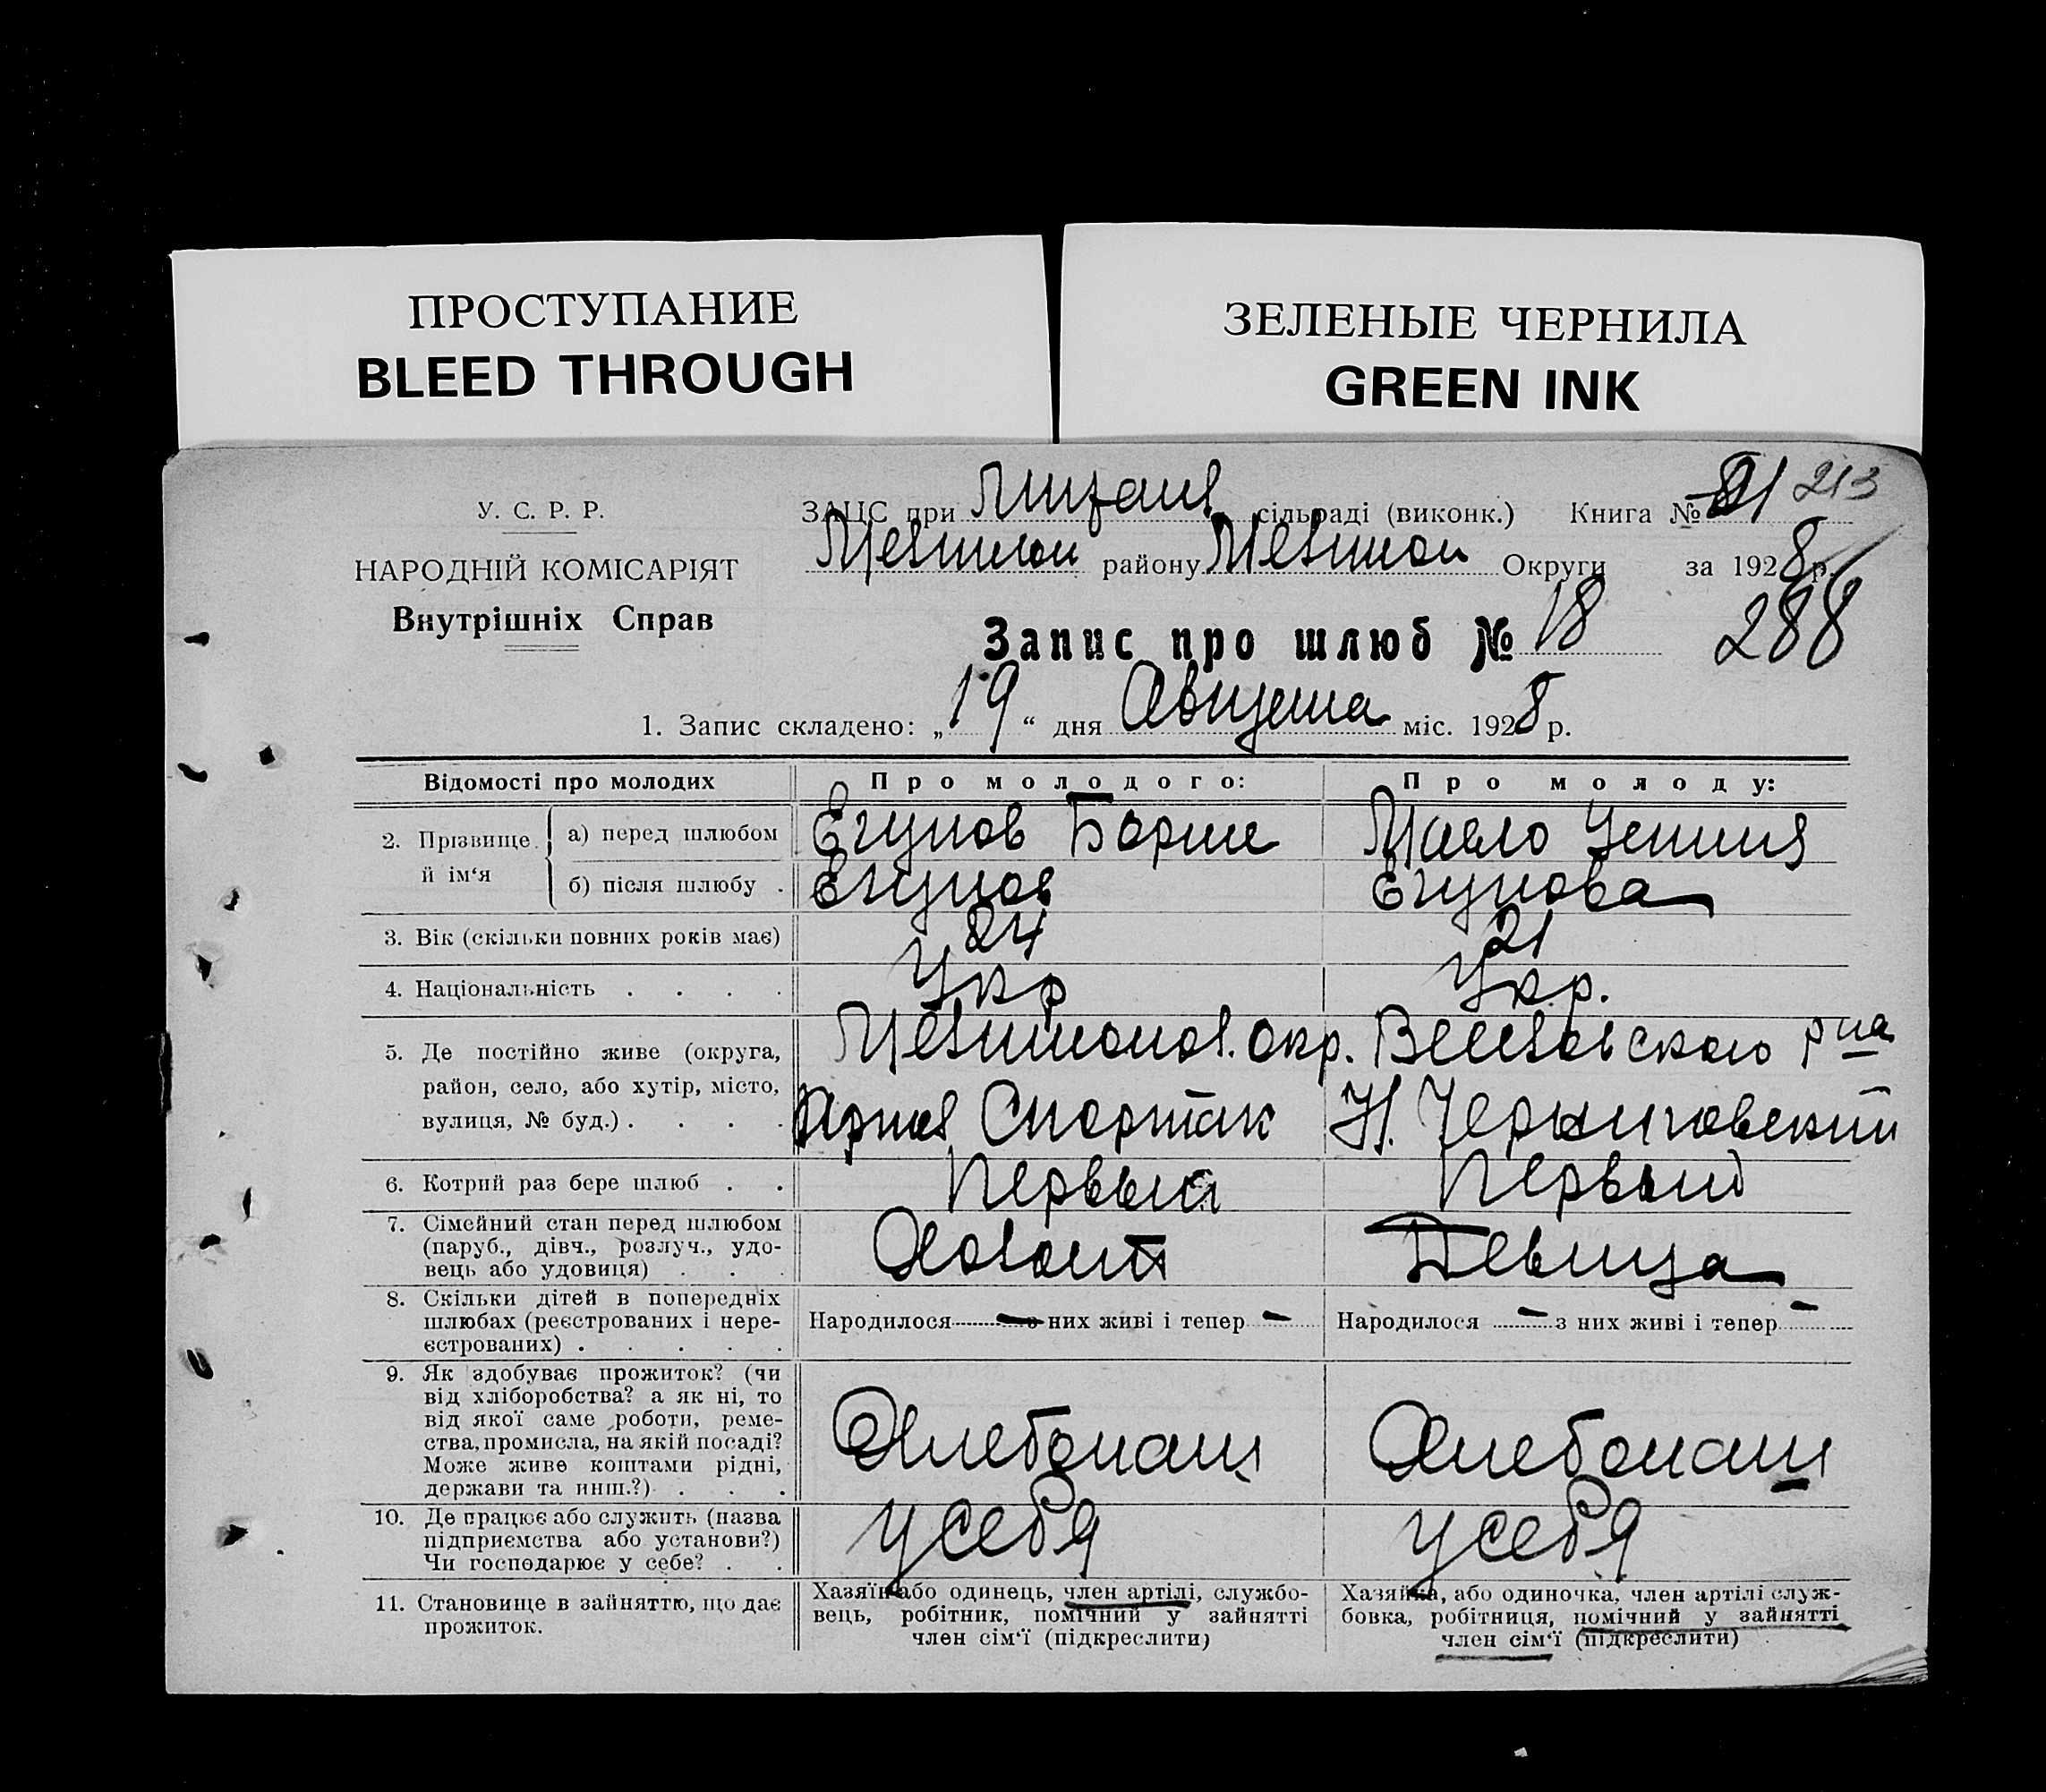 ПРОСТУПАНИЕ
BLEED THROUGH
ЗЕЛЕНЫЕ ЧЕРНИЛА
GREEN INK
У. С. Р. Р.
НАРОДНІЙ КОМІСАРІЯТ
Внутрішніх Справ
ЗАЦС при сільраді (виконк.) Книга № 213
району Округи за 1928 р.
288
Запис про шлюб № 18
1. Запис складено: „19“ дня Августа міс. 1928 р.
Відомості про молодих
Про молодого:
Про молоду:
2. Прізвище й ім‘я
а) перед шлюбом
Егунов Борис
б) після шлюбу .
Егунов
Егунова
3. Вік (скільки повних років має)
24
21
4. Національність . . . .
Укр
Укр.
5. Де постійно живе (округа,
район, село, або хутір, місто,
вулиця, № буд.) . . . .
окр.
р на
Спортак
Н. Черниговский
6. Котрий раз бере шлюб . .
Первый
Первый
7. Сімейний стан перед шлюбом
(паруб., дівч., розлуч., удо-
вець або удовиця) . . .
Холост
Девица
8. Скільки дітей в попередніх
шлюбах (реєстрованих і нере-
єстрованих) . . . . .
Народилося — з них живі і тепер —
Народилося — з них живі і тепер —
9. Як здобуває прожиток? (чи
від хліборобства? а як ні, то
від якої саме роботи, реме-
ства, промисла, на якій посаді?
Може живе коштами рідні,
держави та инш.?) . . .
Хлебопаш
Хлебопаш
10. Де працює або служить (назва
підприємства або установи?)
Чи господарює у себе? . .
у себя
у себя
11. Становище в зайняттю, що дає
прожиток.
Хазяїн або одинець, член артілі, службо-
вець, робітник, помічний у зайнятті
член сім‘ї (підкреслити)
Хазяйка, або одиночка, член артілі служ-
бовка, робітниця, помічний у зайнятті
член сім‘ї (підкреслити)